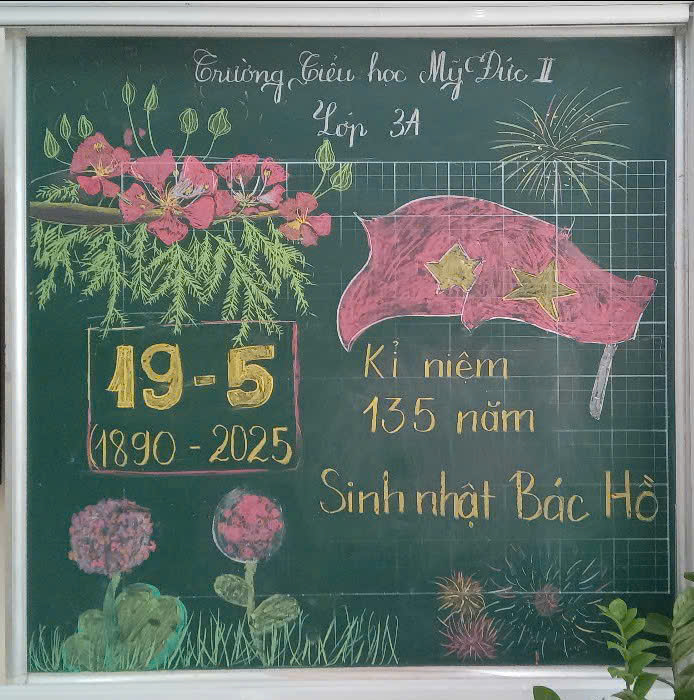 Trường Tiểu học Mỹ Đức II
Lớp 3A
19-5
(1890 - 2025
Kỉ niệm
135 năm
Sinh nhật Bác Hồ